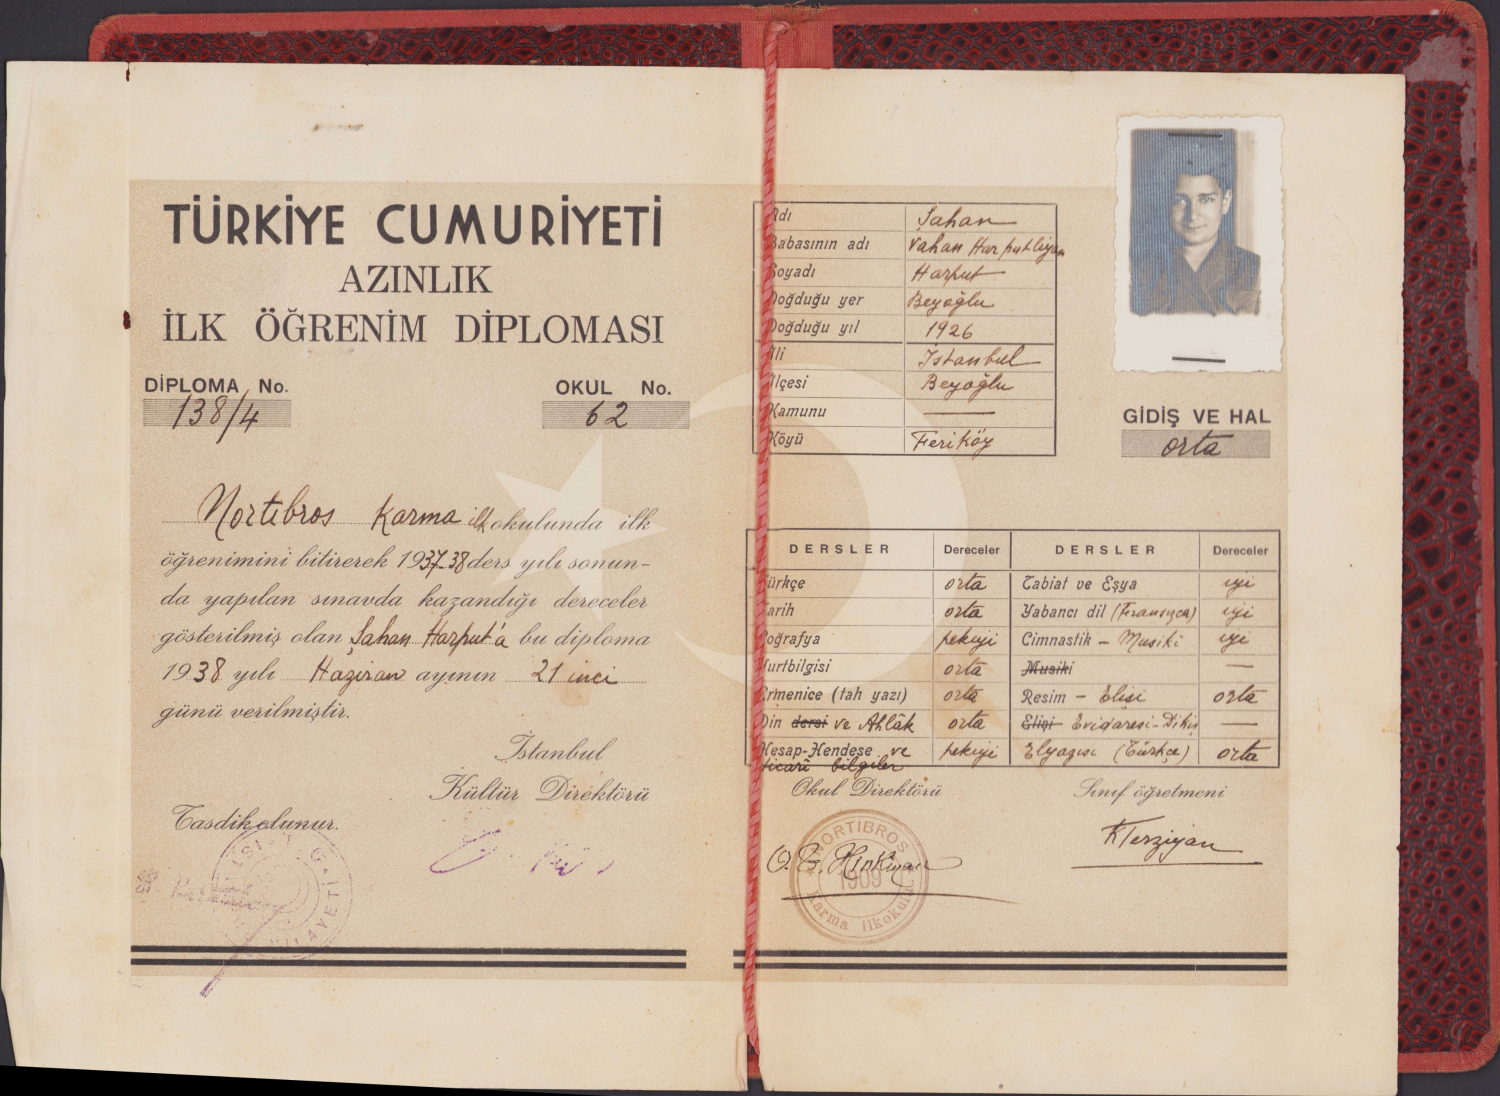 TÜRKİYE CUMURİYETİ
AZINLIK
İLK ÖĞRENİM DİPLOMASI
DİPLOMA No.
138/4
OKUL No.
62
Nortibros Karma ilkokulunda ilk
öğrenimini bitirerek 1937-38 ders yılı sonun-
da yapılan sınavda kazandığı dereceler
gösterilmiş olan Şahan Harput'a bu diploma
1938 yılı Haziran ayının 21 inci
günü verilmiştir.
İstanbul
Kültür Direktörü
Tasdik olunur.
Adı Şahan
Babasının adı Vahan Harputliyan
Soyadı Harput
Doğduğu yer Beyoğlu
Doğduğu yıl 1926
İli İstanbul
İlçesi Beyoğlu
Kamunu —
Köyü Feriköy
GİDİŞ VE HAL
orta
DERSLER Dereceler DERSLER Dereceler
Türkçe orta Tabiat ve Eşya iyi
Tarih orta Yabancı dil (Fransızca) iyi
Coğrafya pekiyi Cimnastik - Musiki iyi
Yurtbilgisi orta Musiki —
Ermenice (tah yazı) orta Resim - Elişi orta
Din dersi ve Ahlâk orta Elişi Evidaresi-Dikiş —
Hesap-Hendese ve pekiyi Elyazısı (Türkçe) orta
ticarî bilgiler
Okul Direktörü Sınıf öğretmeni
K Terziyan
NORTIBROS
1909
Karma İlkokulu